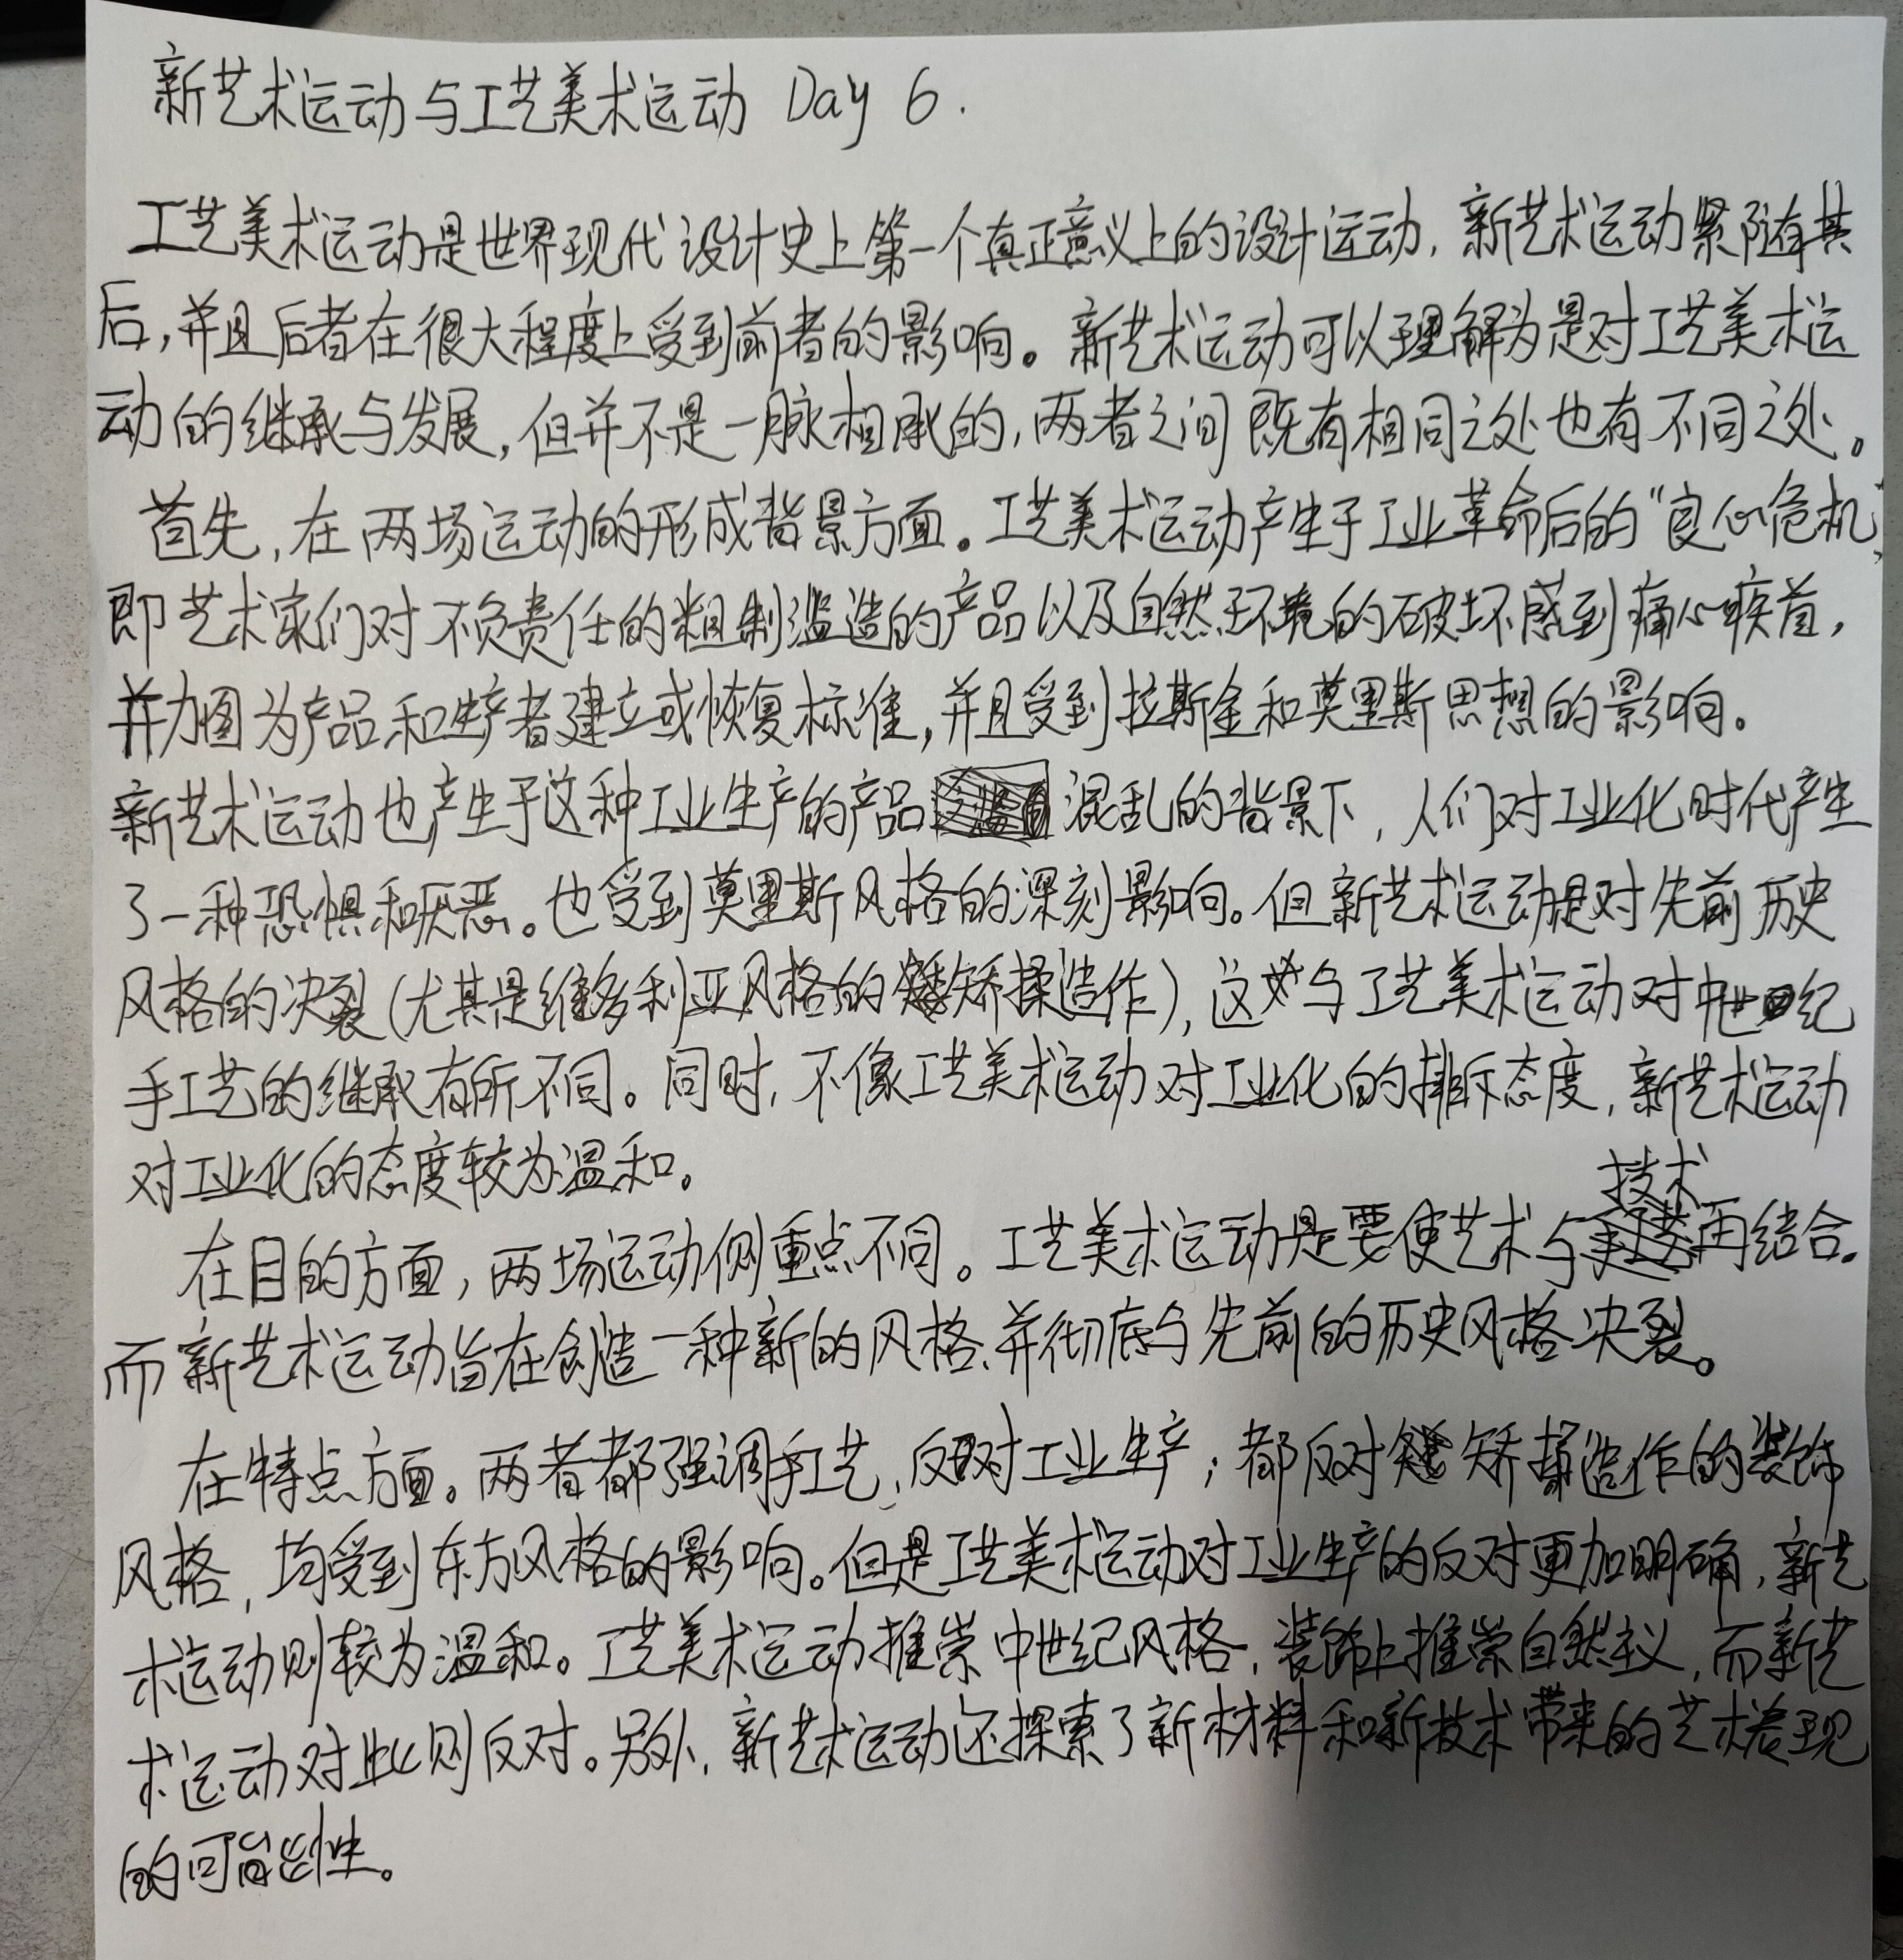 新艺术运动与工艺美术运动 Day 6.
工艺美术运动是世界现代设计史上第一个真正意义上的设计运动,新艺术运动紧随其
后,并且后者在很大程度上受到前者的影响。新艺术运动可以理解为是对工艺美术运
动的继承与发展,但并不是一脉相承的,两者之间既有相同之处也有不同之处。
首先,在两场运动的形成背景方面。工艺美术运动产生于工业革命后的“良心危机”
即艺术家们对不负责任的粗制滥造的产品以及自然环境的破坏感到痛心疾首,
并力图为产品和生产者建立或恢复标准,并且受到拉斯金和莫里斯思想的影响。
新艺术运动也产生于这种工业生产的产品混乱的背景下,人们对工业化时代产生
了一种恐惧和厌恶。也受到莫里斯风格的深刻影响。但新艺术运动是对先前历史
风格的决裂(尤其是维多利亚风格的矫揉造作),这与工艺美术运动对中世纪
手工艺的继承有所不同。同时,不像工艺美术运动对工业化的排斥态度,新艺术运动
对工业化的态度较为温和。
在目的方面,两场运动侧重点不同。工艺美术运动是要使艺术与技术再结合。
而新艺术运动旨在创造一种新的风格、并彻底与先前的历史风格决裂。
在特点方面。两者都强调手工艺、反对工业生产;都反对矫揉造作的装饰
风格,均受到东方风格的影响。但是工艺美术运动对工业生产的反对更加明确,新艺
术运动则较为温和。工艺美术运动推崇中世纪风格,装饰上推崇自然主义,而新艺
术运动对此则反对。另外,新艺术运动还探索了新材料和新技术带来的艺术表现
的可能性。